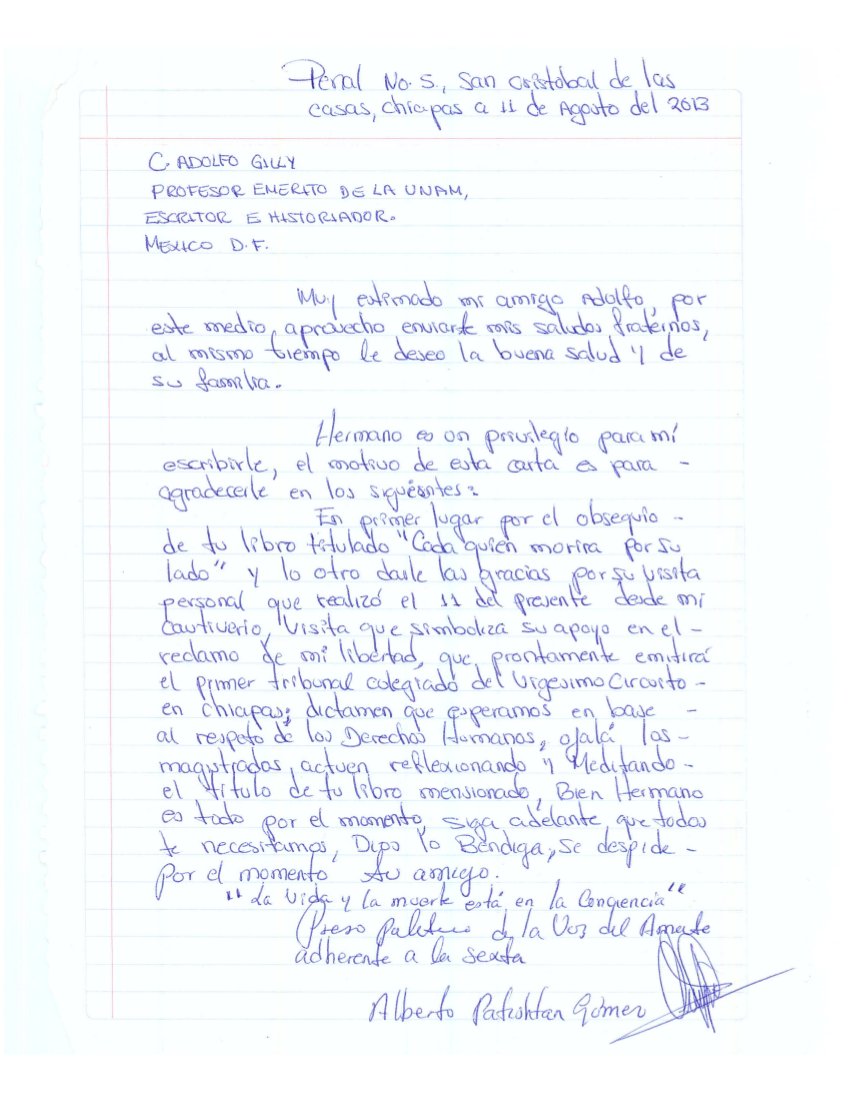 Penal No. 5, San cristobal de las
casas, chiapas a 11 de Agosto del 2013
C. ADOLFO GILLY
PROFESOR EMERITO DE LA UNAM,
ESCRITOR E HISTORIADOR.
MEXICO D.F.
Muy estimado mi amigo Adolfo, por
este medio, aprovecho enviarle mis saludos fraternos,
al mismo tiempo le deseo la buena salud y de
su familia.
Hermano es un privilegio para mí
escribirle, el motivo de esta carta es para -
agradecerle en los siguientes:
En primer lugar por el obsequio -
de tu libro titulado "Cada quien morira por su
lado" y lo otro darle las gracias por su visita
personal que realizó el 11 del presente desde mi
Cautiverio, Visita que simboliza su apoyo en el -
reclamo de mi libertad, que prontamente emitirá
el primer tribunal colegiado del Vigesimo Circuito -
en chiapas; dictamen que esperamos en base -
al respeto de los Derechos Humanos, ojalá los -
magistrados, actuen reflexionando y Meditando -
el título de tu libro mensionado, Bien Hermano
es todo por el momento, siga adelante, que todos
te necesitamos, Dios lo Bendiga, se despide -
Por el momento tu amigo.
"La Vida y la muerte está en la Conciencia"
Preso de la Voz del Amate
adherente a la sexta
Alberto Patishtan Gómez